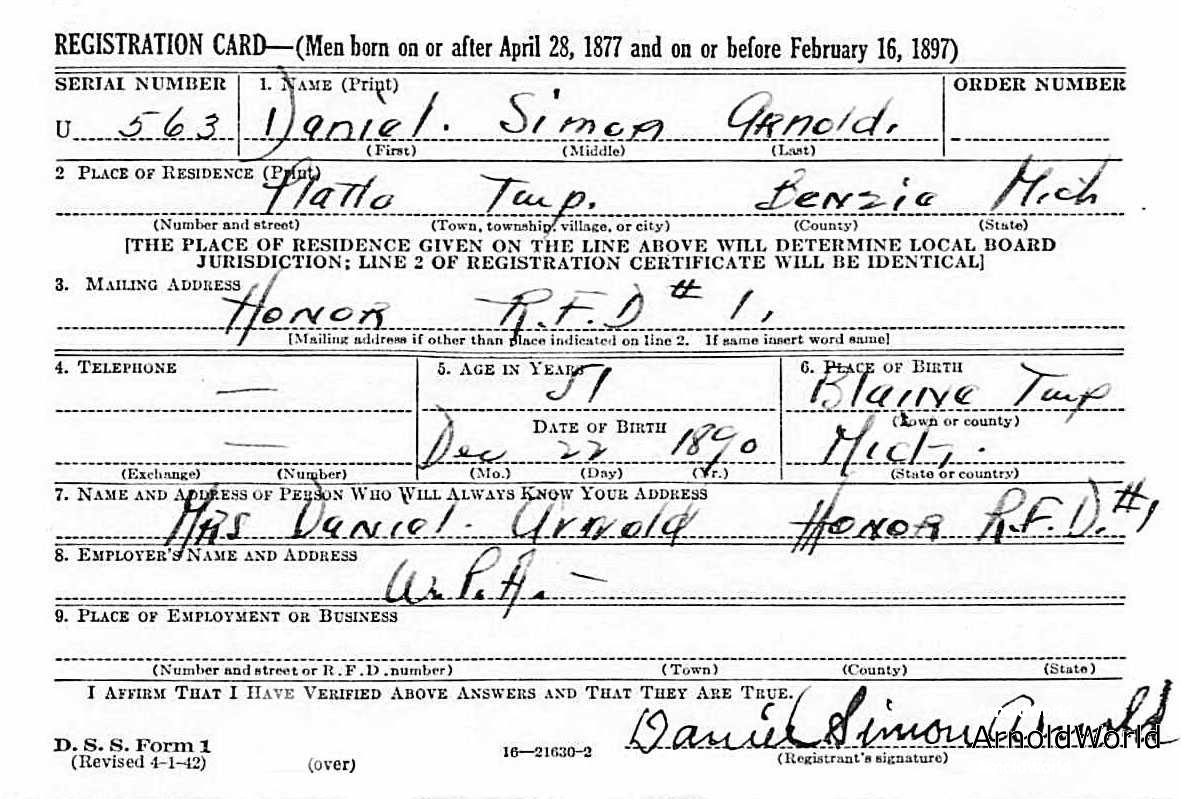 REGISTRATION CARD—(Men born on or after April 28, 1877 and on or before February 16, 1897)
SERIAL NUMBER 1. NAME (Print) ORDER NUMBER
U 563 Daniel. Simon Arnold.
(First) (Middle) (Last)
2 PLACE OF RESIDENCE (Print)
Platte Twp. Benzie Mich
(Number and street) (Town, township, village, or city) (County) (State)
[THE PLACE OF RESIDENCE GIVEN ON THE LINE ABOVE WILL DETERMINE LOCAL BOARD
JURISDICTION; LINE 2 OF REGISTRATION CERTIFICATE WILL BE IDENTICAL]
3. MAILING ADDRESS
HONOR R.F.D # 1,
[Mailing address if other than place indicated on line 2. If same insert word same]
4. TELEPHONE 5. AGE IN YEARS 6. PLACE OF BIRTH
— 51 Blaine Twp
DATE OF BIRTH (Town or county)
— Dec 22 1890 Mich.
(Exchange) (Number) (Mo.) (Day) (Yr.) (State or country)
7. NAME AND ADDRESS OF PERSON WHO WILL ALWAYS KNOW YOUR ADDRESS
MRS Daniel. Arnold HONOR R.F.D. #1
8. EMPLOYER'S NAME AND ADDRESS
W.P.A. —
9. PLACE OF EMPLOYMENT OR BUSINESS
(Number and street or R.F.D. number) (Town) (County) (State)
I AFFIRM THAT I HAVE VERIFIED ABOVE ANSWERS AND THAT THEY ARE TRUE.
Daniel Simon Arnold
ArnoldWorld
D. S. S. Form 1 16—21630-2 (Registrant's signature)
(Revised 4-1-42) (over)